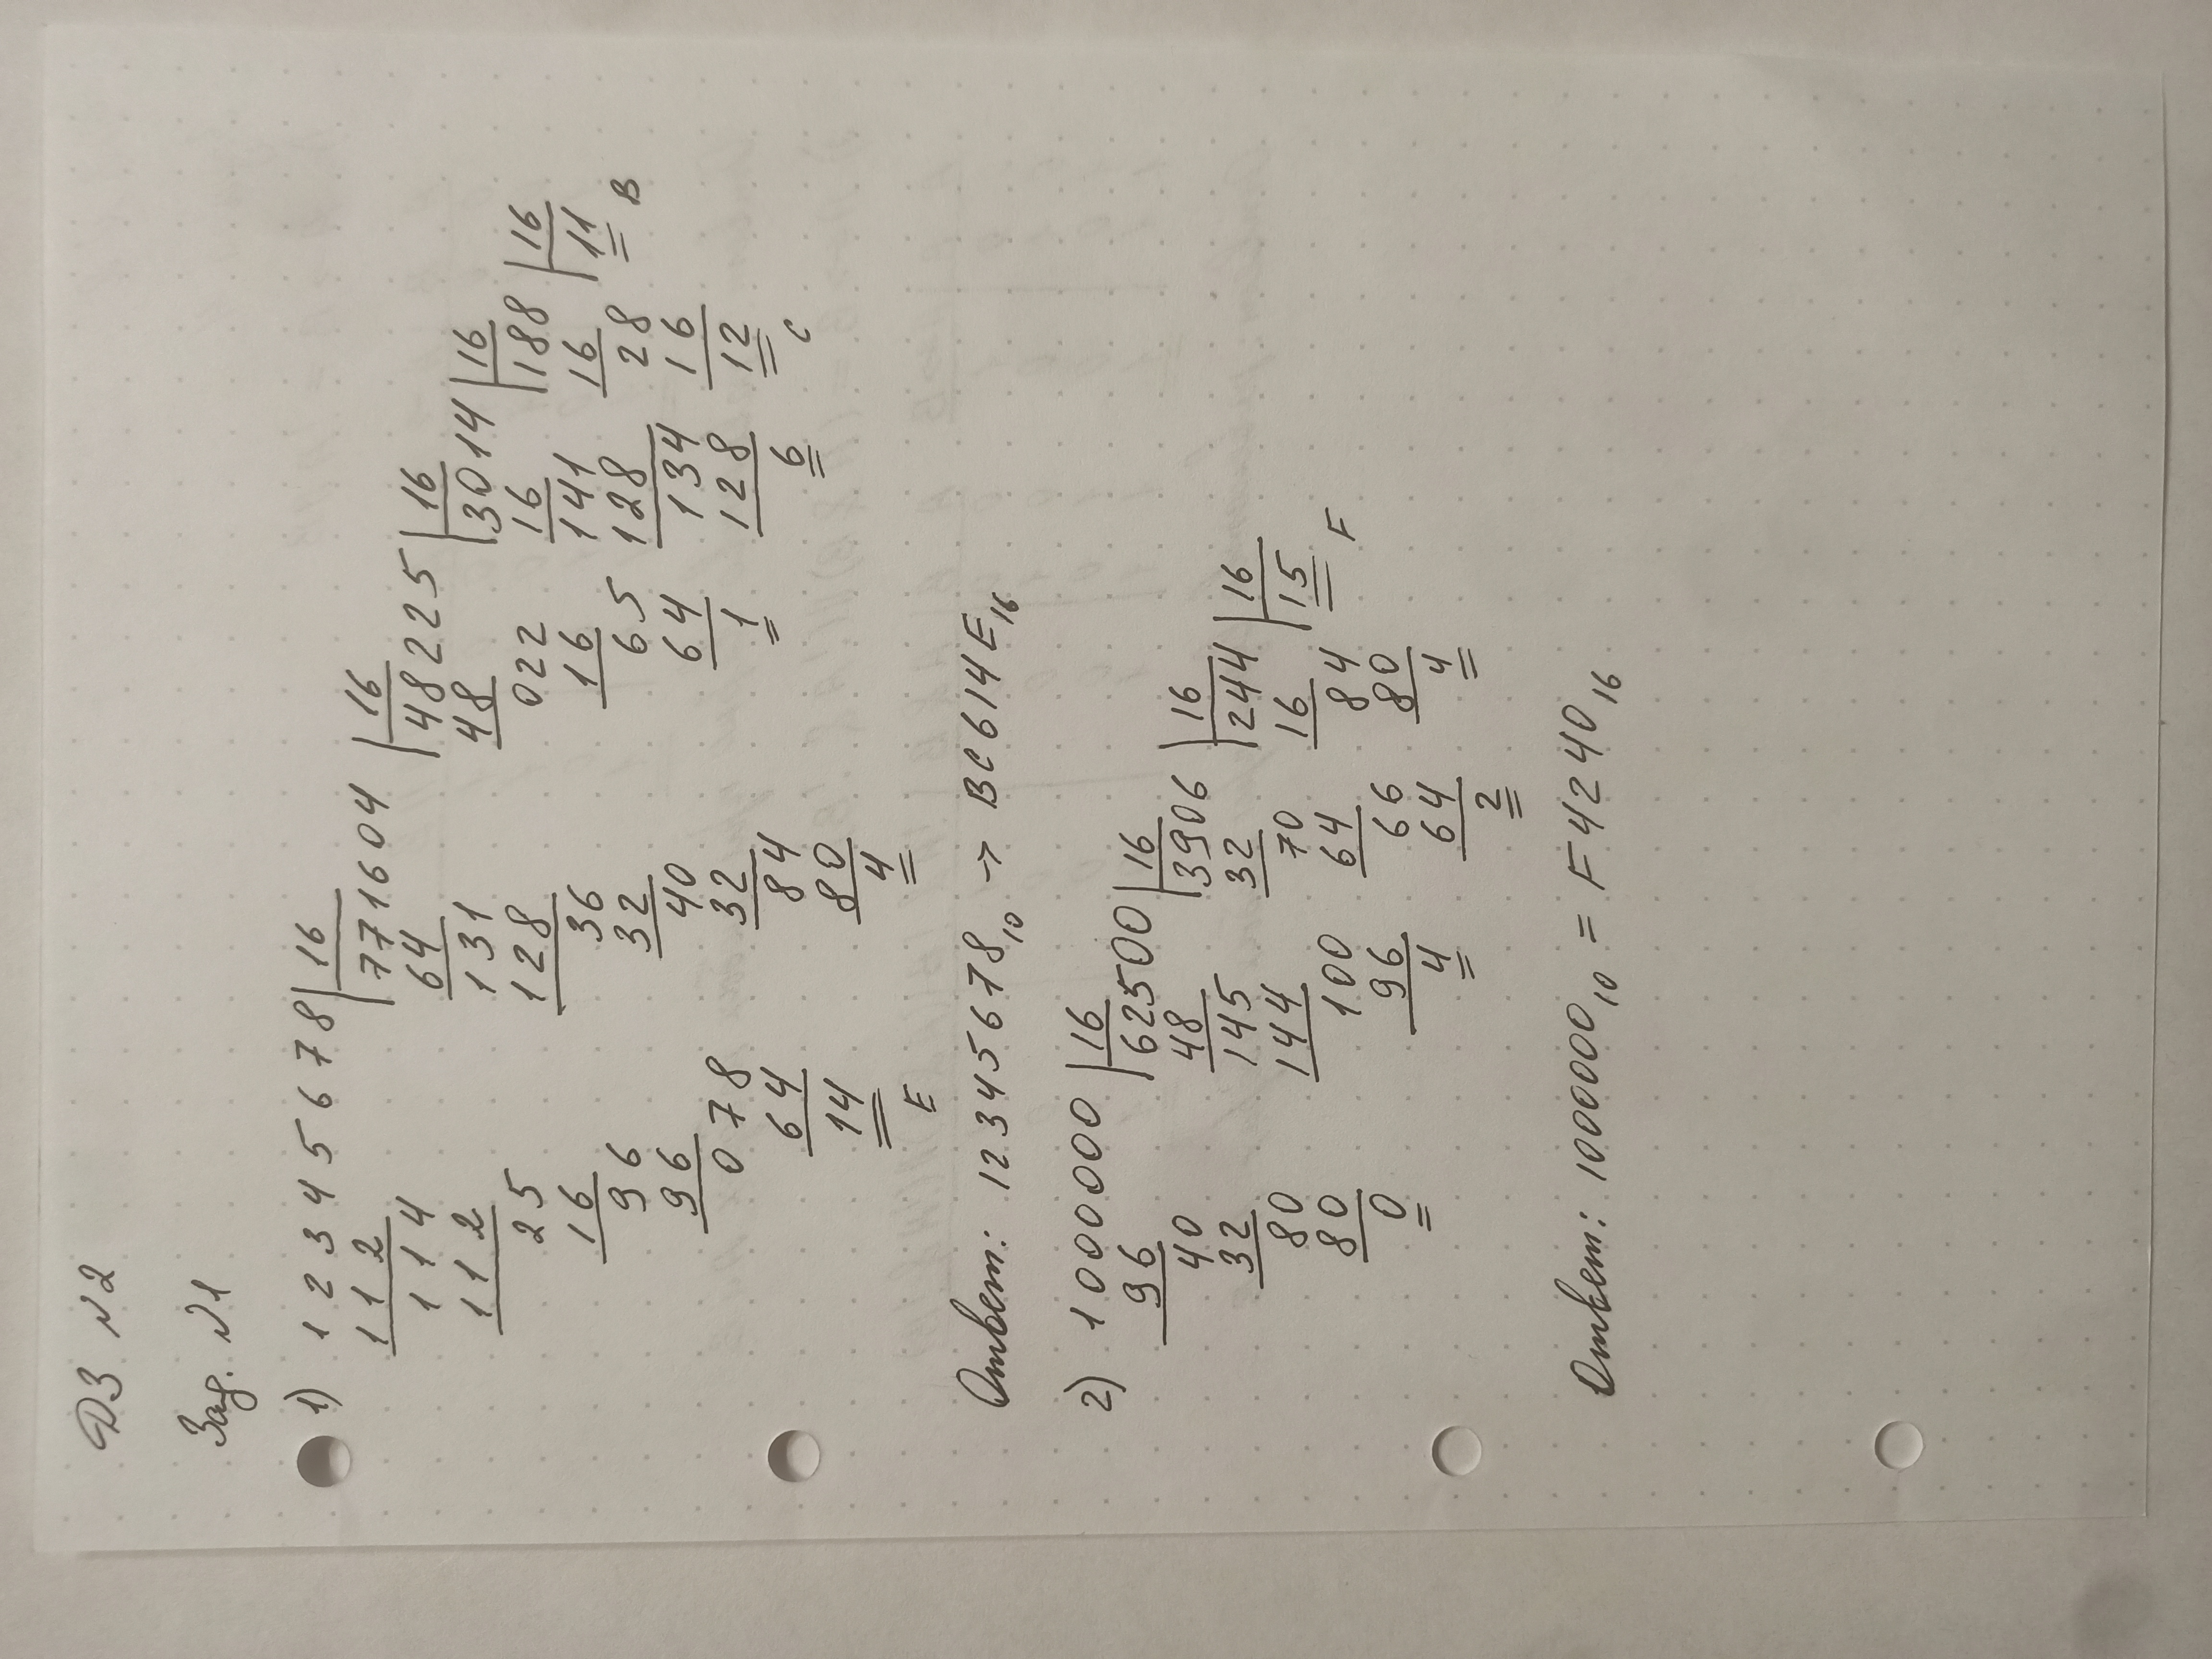 ДЗ №2
Зад. №1
1) 12345678 | 16
112 771604 | 16
114 64 48225 | 16
112 131 48 3014 | 16
25 128 022 16 188 | 16
16 36 16 141 16 11
96 32 65 128 28 B
96 40 64 134 16
078 32 1 128 12
64 84 6 C
14 80
E 4
Ответ: 12345678₁₀ → BC614E₁₆
2) 1000000 | 16
96 62500 | 16
40 48 3906 | 16
32 145 32 244 | 16
80 144 70 16 15
80 100 64 84 F
0 96 66 80
4 64 4
2
Ответ: 1000000₁₀ = F4240₁₆